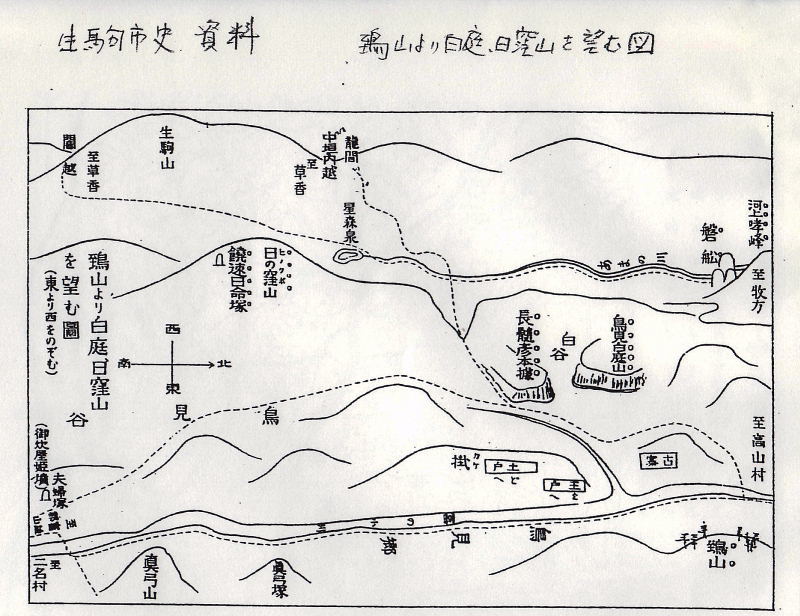 生駒市史 資料
鵄山より白庭、日窪山を望む図
河上哮峰
磐舩
至牧方
龍間
中垣内越
至草香
生駒山
至草香
闇越
星森泉
日の窪山
ヒノクボ
饒速日命塚
鵄山より白庭、日窪山
を望む圖
(東より西をのぞむ)
西
南
北
東
鳥見白庭山
白谷
長髄彦本據
鳥
見
谷
至高山村
古
掛
カケ
土戸
どへ
夫婦塚
(御炊屋姫墳)
至二名村
真弓山
眞弓塚
鳥見
鵄山